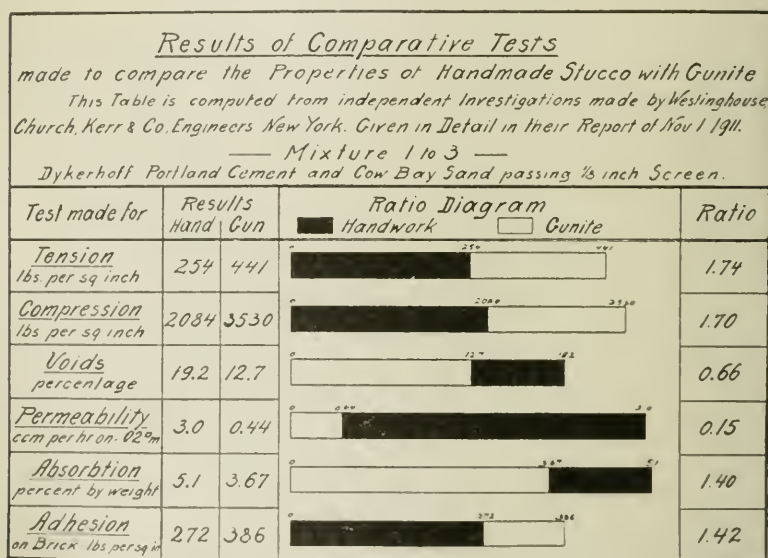 Results of Comparative Tests
made to compare the Properties of Handmade Stucco with Gunite
This Table is computed from independent Investigations made by Westinghouse,
Church, Kerr & Co. Engineers New York. Given in Detail in their Report of Nov 1 1911.
— Mixture 1 to 3 —
Dykerhoff Portland Cement and Cow Bay Sand passing 1/8 inch Screen.
Test made for Results Ratio Diagram Ratio
Hand Gun Handwork Gunite
Tension
lbs. per sq inch
254 441 0 254 441 1.74
Compression
lbs per sq inch
2084 3530 0 2084 3530 1.70
Voids
percentage
19.2 12.7 0 12.7 0.66
Permeability
ccm per hr on
3.0 0.44 0 3.0 0.15
Absorbtion
percent by weight
5.1 3.67 0 3.67 5.1 1.40
Adhesion
on Brick lbs per sq in
272 386 0 272 386 1.42